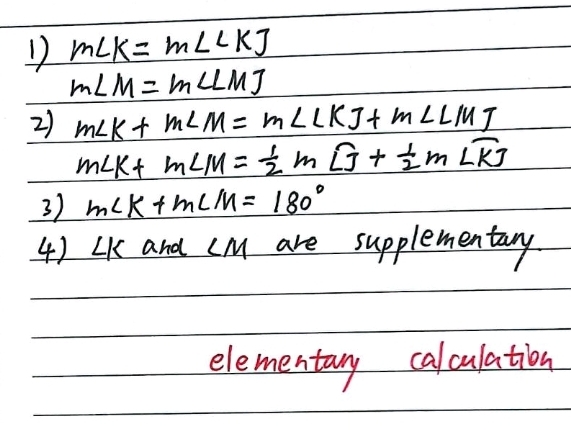 1) m∠K = m∠LKJ
m∠M = m∠LMJ
2) m∠K + m∠M = m∠LKJ + m∠LMJ
m∠K + m∠M = ½ m L͡J + ½ m L͡KJ
3) m∠K + m∠M = 180°
4) ∠K and ∠M are supplementary.
elementary calculation